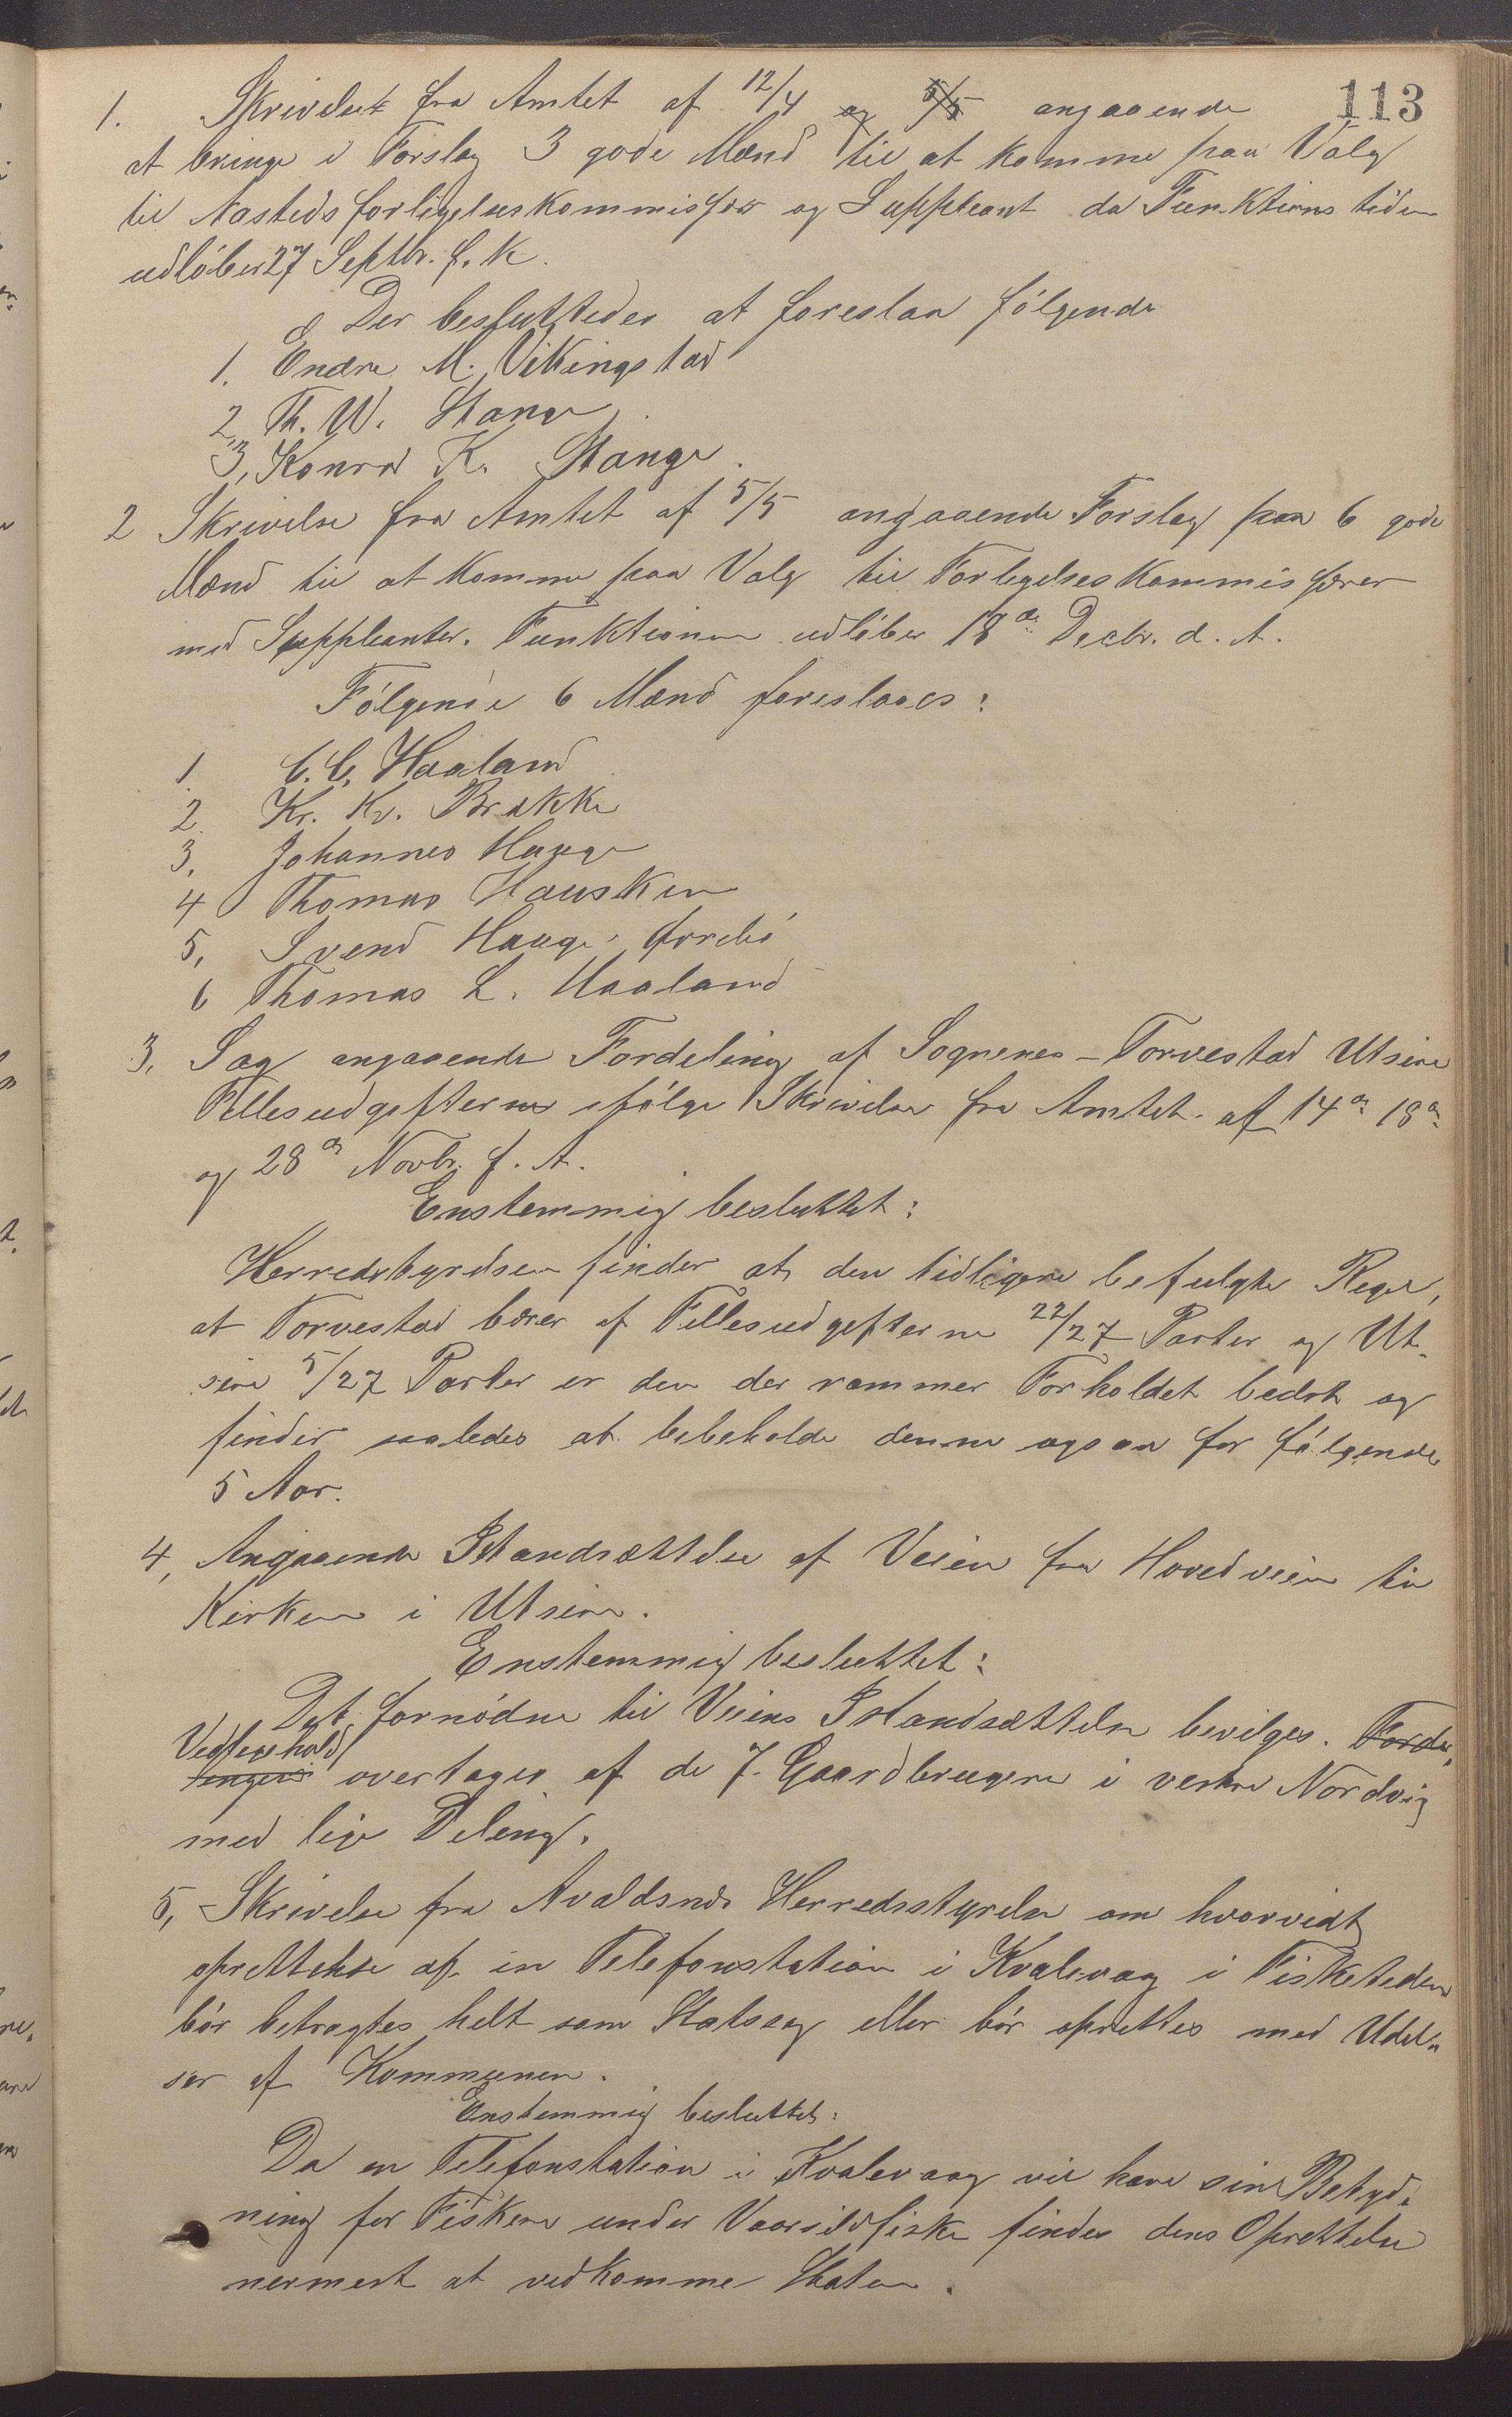 113
1. Skrivelse fra Amtet af 12/4 og 5/5 angaaende
at bringe i Forslag 3 gode Mænd til at komme paa Valg
til Nasteds forligelseskommissær og Suppleant da Funktions tiden
udløber 27 Septbr. f. K.
Der besluttedes at foreslaa følgende
1. Endre M. Vikingstad
2. Th. W. Stange
3, Konrad K. Stange.
2 Skrivelse fra Amtet af 5/5 angaaende Forslag paa 6 gode
Mænd til at komme paa Valg til Forligelseskommissærer
med Suppleanter. Funktionen udløber 18de Decbr. d. A.
Følgende 6 Mænd foreslaaes:
1. C. C. Haaland
2. Kr. Kr. Brekke
3, Johannes Hauge
4 Thomas Hausken
5, Svend Hauge
6 Thomas L. Haaland
3, Sag angaaende Fordeling af Sognenes - Torvestad Utsire
Fellesudgifterne ifølge Skrivelse fra Amtet af 14de 18de
og 28de Novbr. f. A.
Enstemmig besluttet:
Herredstyrelsen finder at den tidligere befulgte Regel,
at Torvestad bærer af Fellesudgifterne 22/27 Parter og Ut-
sire 5/27 Parter er den der rammer Forholdet bedst og
finder saaledes at bebeholde denne ogsaa for følgende
5 Aar.
4, Angaaende Istandsættelse af Veien fra Hovedveien til
Kirken i Utsire.
Enstemmig besluttet:
Det fornødne til Veiens Istandsættelse bevilges. Forde-
Vedligehold
lingen overtages af de 7 Gaardbrugere i vestre Nordvig
med lige Deling.
5, Skrivelse fra Avaldsnes Herredsstyrelse om hvorvidt
oprettelse af en Telefonstation i Kvalevaag i Fisketiden
bør betragtes helt som Statssag eller bør oprettes med Udel-
ser af Kommunen.
Enstemmig besluttet:
Da en Telefonstation i Kvalevaag vil have sin Betyd-
ning for Fiskere under Vaarsildfiske findes dens Oprettelse
nermest at vedkomme Staten.